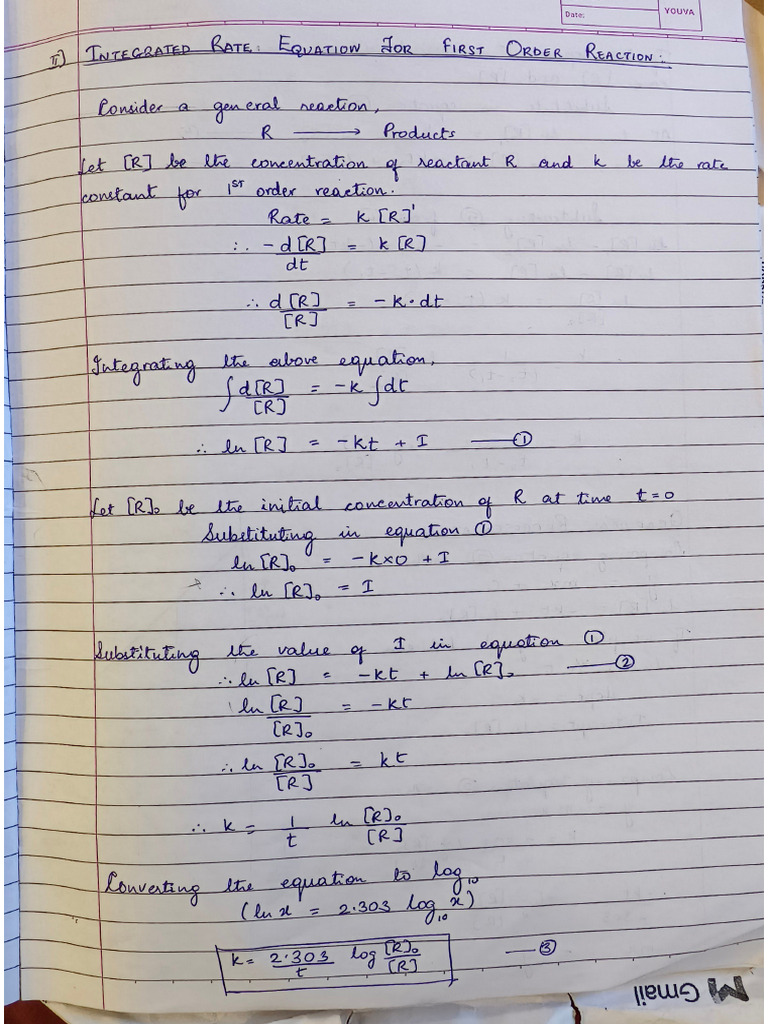 Date:
YOUVA
II) INTEGRATED RATE EQUATION FOR FIRST ORDER REACTION:
Consider a general reaction,
R ⟶ Products
Let [R] be the concentration of reactant R and k be the rate
constant for 1ST order reaction.
Rate = k [R]¹
∴ -d[R]/dt = k [R]
∴ d[R]/[R] = -k·dt
Integrating the above equation,
∫ d[R]/[R] = -k ∫dt
∴ ln [R] = -kt + I —— ①
Let [R]₀ be the initial concentration of R at time t=0
Substituting in equation ①
ln [R]₀ = -k×0 + I
∴ ln [R]₀ = I
Substituting the value of I in equation ①
∴ ln [R] = -kt + ln [R]₀ —— ②
ln [R]/[R]₀ = -kt
∴ ln [R]₀/[R] = kt
∴ k = 1/t ln [R]₀/[R]
Converting the equation to log₁₀
(ln x = 2.303 log₁₀ x)
k = 2.303/t log [R]₀/[R] —— ③
M Gmail